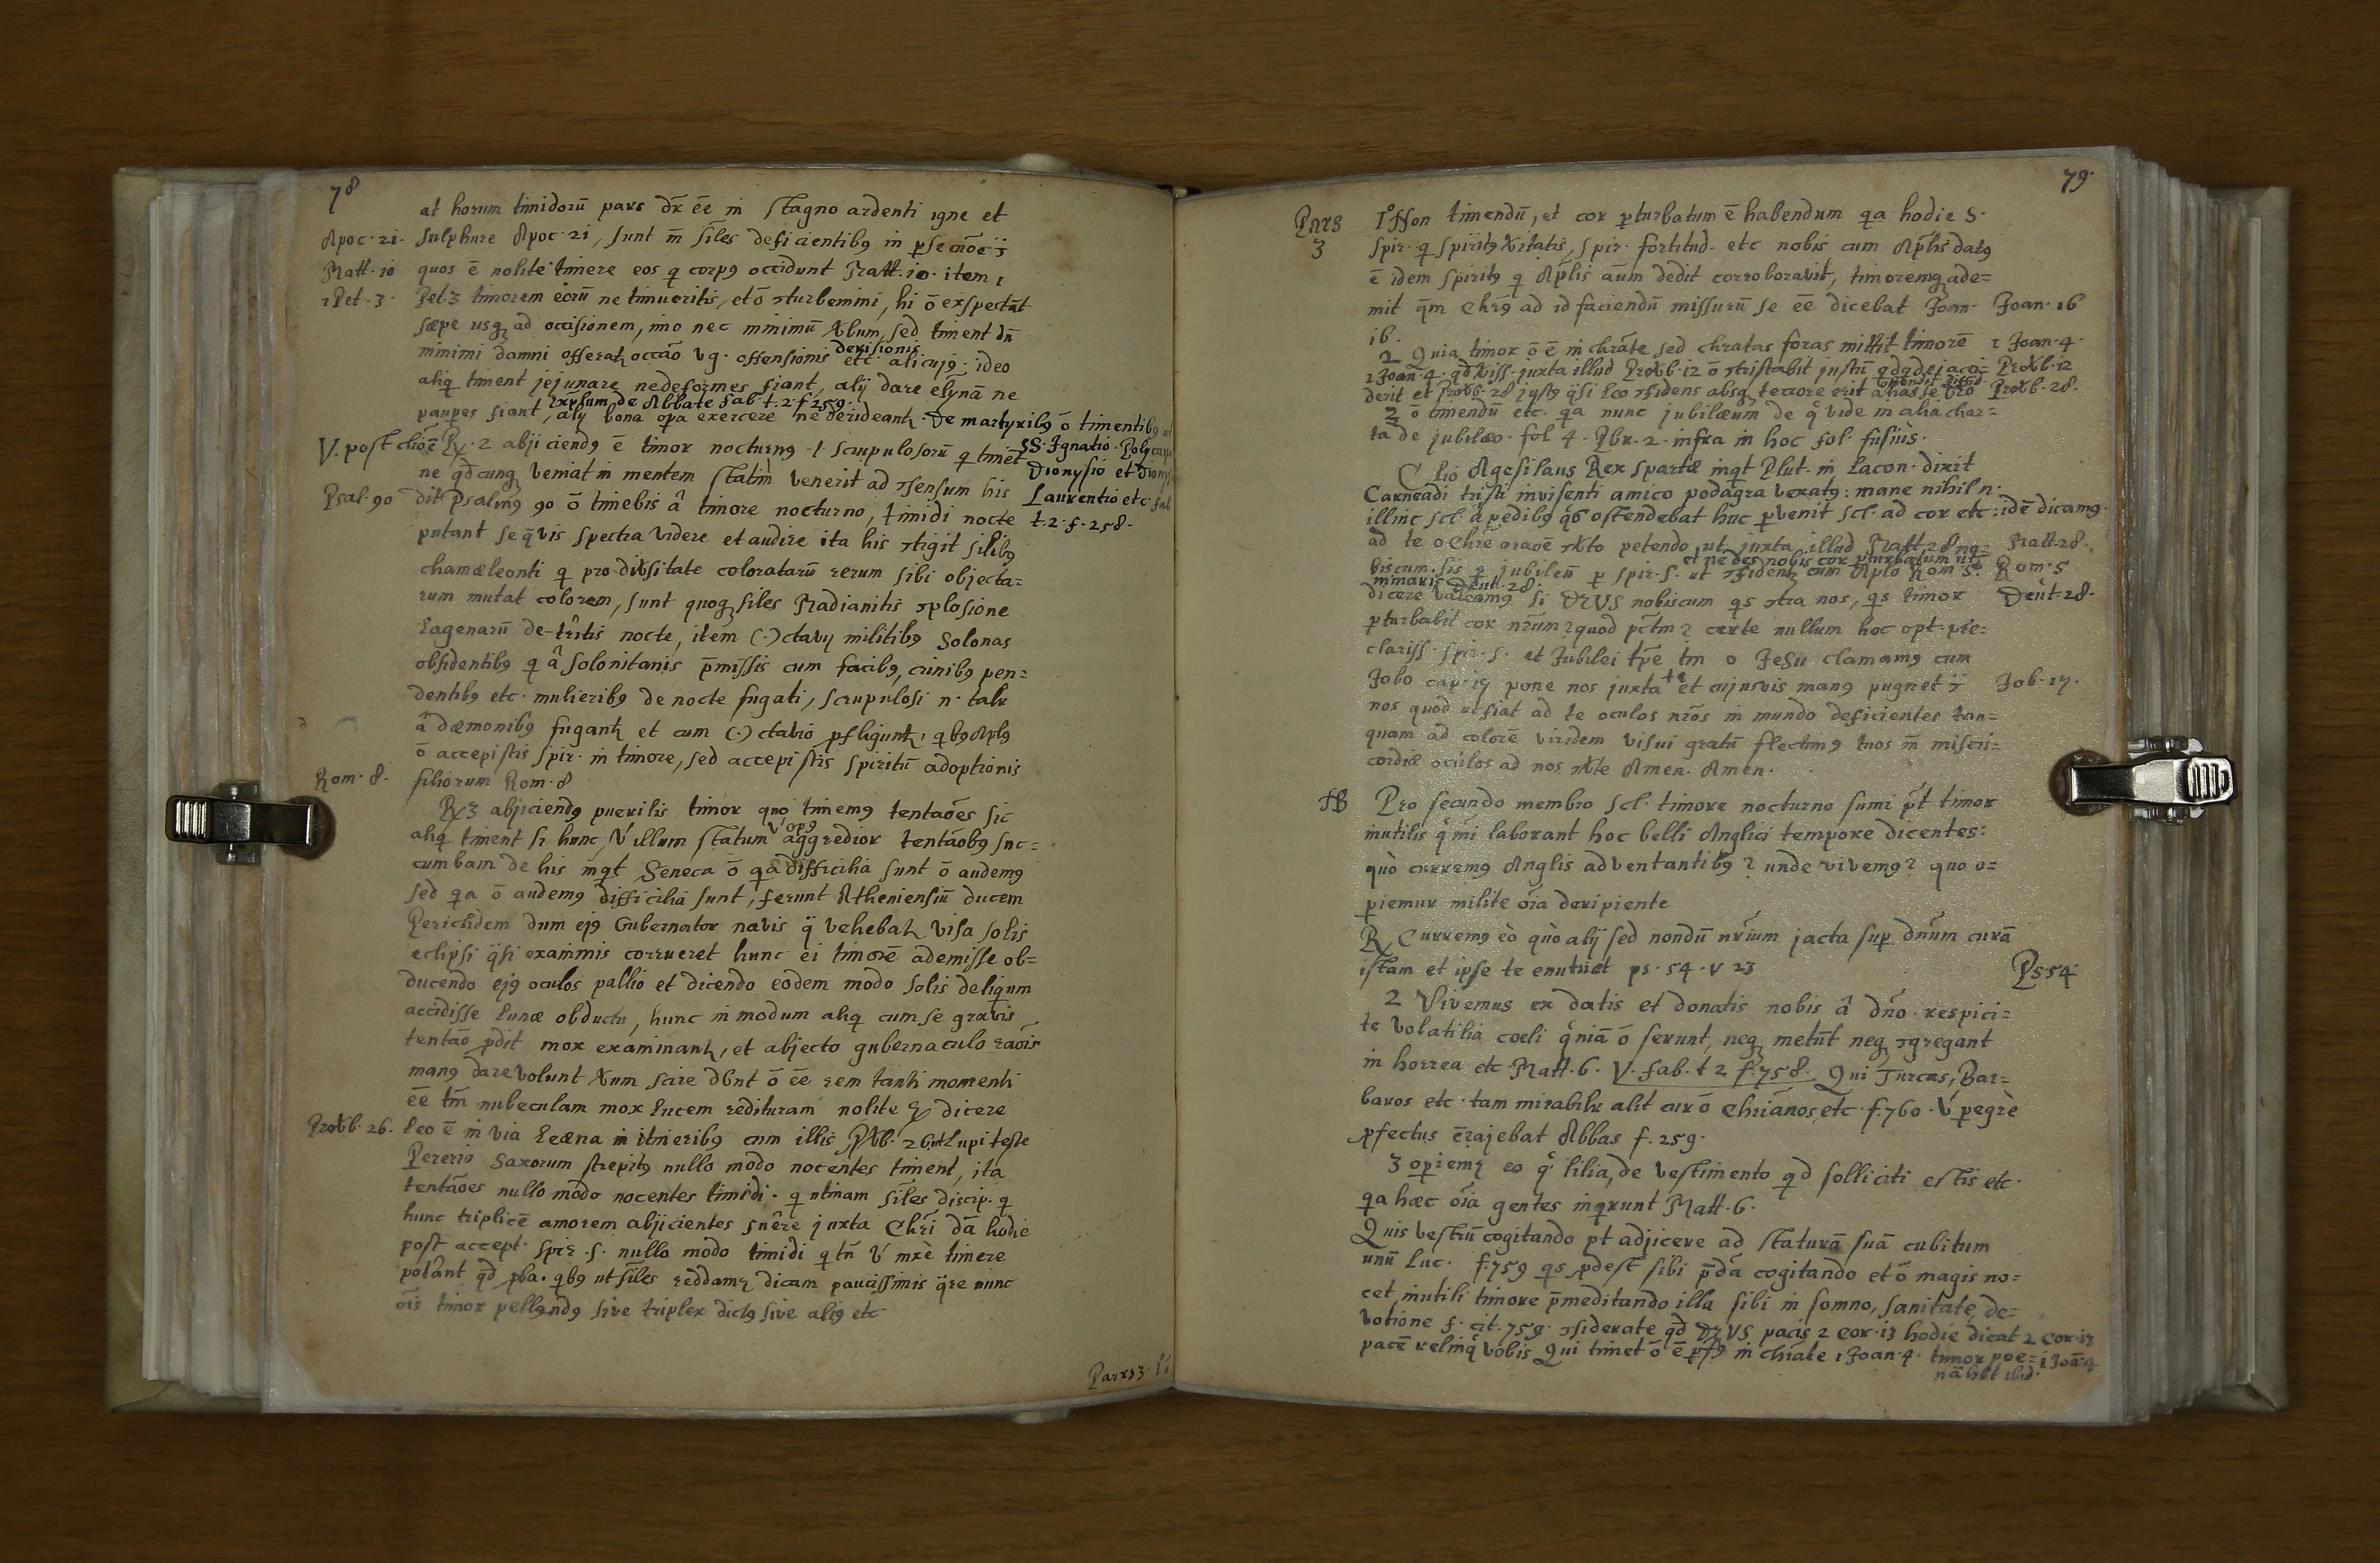 78
at horum timidorū pars dr̄ ēe in stagno ardenti igne et
Apoc. 21. sulphure Apoc. 21, sunt m̄ siles deficientibꝯ in
Matt. 10 quos ē nolite timere eos q corpꝯ occidunt Matt. 10. item 1
1 Pet. 3. Pet. 3 timorem eorū ne timueritis, et ō ɔturbemini, hi ō exspectāt
sæpe usqꝫ ad occisionem, imo nec minimū Xbum, sed timent dū
derisionis
minimi damni offerat occāo vg. offensionis etc. alicujꝯ: ideo
aliq timent jejunare ne deformes fiant, alij dare elÿnā ne
expsum de Abbate fab t. 2. f 259.
paupes fiant, alij bona opa exercere ne derideant. De martyribꝯ ō timentibꝯ
V. post R 2 abjiciendꝯ ē timor nocturnꝯ .l. scrupulosorū q timēt SS. Ignatio. Polycarpo
ne qd̄cunqꝫ veniat in mentem statim venerit ad ɔsensum his Dionysio et
Psal. 90 dit Psalmꝯ 90 ō timebis â timore nocturno, timidi nocte Laurentio etc. fab
t. 2. f. 258.
putant se q̄vis spectra videre et audire ita his ɔtigit silibꝯ
chamæleonti q pro diXsitate coloratarū rerum sibi objecta=
rum mutat colorem, sunt quoqꝫ siles Madianitis ɔplosione
Lagenarū de-tritis nocte, item (.)ctavij militibꝯ Solonas
obsidentibꝯ q â Solonitanis p̄missis cum facibꝯ, crinibꝯ pen=
dentibꝯ etc. mulieribꝯ de nocte fugati, scrupulosi n. talr
â dæmonibꝯ fugant et cum (.)ctavio pfligunt, qbꝯ Aplꝯ
ō accepistis spir. in timore, sed accepistis spiritū adoptionis
Rom. 8. filiorum Rom. 8
R 3 abjiciendꝯ puerilis timor quo timemꝯ tentaōes sic
v opꝯ
aliq timent si hunc v illum statum aggredior tentaōbꝯ suc=
cumbam de his inqt Seneca ō qa difficilia sunt ō audemꝯ
sed qa ō audemꝯ difficilia sunt, ferunt Atheniensiū ducem
Periclidem dum ejꝯ Gubernator navis q̄ vehebat visa solis
eclipsi q̄si exanimis corrueret hunc ei timorē ademisse ob=
ducendo ejꝯ oculos pallio et dicendo eodem modo solis deliqium
accidisse Lunæ obductu, hunc in modum aliq cum se gravis
tentāo pdit mox exanimant, et abjecto gubernaculo raōis
manꝯ dare volunt Xum scire dbnt ō ēe rem tanti momenti
ēe tm̄ nubeculam mox lucem redituram nolite dicere
ProXb. 26. Leo ē in via Leæna in itineribꝯ cum illis PXb. 26 ut Lupi teste
Pererio Saxorum strepitꝯ nullo modo nocentes timent, ita
tentāoes nullo modo nocentes timidi. q utinam siles discip. q
hunc triplicē amorem abjicientes juxta Chri dā hodie
post accept. spir. s. nullo modo timidi q tn̄ v timere
potānt qd̄ pba. qbꝯ ut siles reddamꝫ dicam paucissimis q̄re nunc
oīs timor pellendꝯ sive triplex dictꝯ sive aliꝯ etc
Pars 3. 1º
79.
Pars 3 1º Non timendū, et cor pturbatum ē habendum qa hodie S.
spir. q spiritꝯ Xitatis, spir. fortitud. etc nobis cum Aplis datꝯ
ē idem spiritꝯ q Aplis aūm dedit corroboravit, timoremqꝫ ade=
mit qm̄ Chrꝯ ad id faciendū missurū se ēe dicebat Joan. Joan. 16
16.
2 Quia timor ō ē in chrāte sed chratas foras mittit timorē 1 Joan. 4.
1 Joan. 4. juxta illud ProXb. 12 ō ɔtristabit justū ProXb. 12
derit et ProXb. 28 justꝯ q̄si Leo ɔfidens absqꝫ terrore erit ProXb. 28.
3 ō timendū etc. qa nunc jubilæum de q vide in alia char=
ta de jubilæo. fol 4. Pbr. 2. infra in hoc fol. fusiùs.
C lio Agesilaus Rex Spartæ inqt Plut. in Lacon. dixit
Carneadi tristi invisenti amico podagra vexatꝯ: mane nihil n.
illinc scl. â pedibꝯ qs ostendebat huc pvenit scl. ad cor etc: idē dicamꝯ
ad te o Chre oraoē petendo, ut juxta illud Matt. 28 Matt. 28.
et ne des nobis cor pturbatum ut
biscum sis jubileū p spir. s. ut ɔfident cum Aplo Rom 5. Rom. 5
minaris Deut. 28.
dicere valeamꝯ si DEVS nobiscum qs ɔtra nos, qs timor Deut. 28.
pturbabit cor nrum? quod pctm? certe nullum hoc opt. pre=
clariss. spir. s. et Jubilei tpe tm o Jesu clamamꝯ cum
Jobo cap. 17 pone nos juxta te et cujusvis manꝯ pugnet Job. 17.
nos quod ut fiat ad te oculos nros in mundo deficientes tan=
quam ad colorē viridem visui gratū flectimꝯ tuos m̄ miseri=
cordiæ oculos ad nos Amen. Amen.
NB Pro secundo membro scl. timore nocturno sumi pt timor
inutilis q mi laborant hoc belli Anglici tempore dicentes:
quò curremꝯ Anglis adventantibꝯ? unde vivemꝯ? quo o=
piemur milite oīa deripiente
R Curremꝯ eò quò alij sed nondū jacta sup dnum curā
istam et ipse te enutriet ps. 54. v 23 Ps 54
2 Vivemus ex datis et donatis nobis â dno. respici=
te volatilia coeli qniā ō serunt, neqꝫ metūt neqꝫ ɔgregant
in horrea etc Matt. 6. V. fab. t 2 f. 758. Qui Turcas, Bar=
baros etc. tam mirabilr alit cur ō Chrianos, etc. f. 760. V pegrè
pfectus ajebat Abbas f. 259.
3 opiemꝫ eo q lilia, de vestimento qd solliciti estis etc.
qa hæc oīa gentes inqrunt Matt. 6.
Quis vestrū cogitando pt adjicere ad staturā suā cubitum
unū Luc. f 759 qs pdest sibi p̄dā cogitando et ō magis no=
cet inutili timore p̄meditando illa sibi in somno, sanitate, de=
votione f. cit. 759. ɔsiderate qd̄ DEVS pacis 2 Cor. 13 hodie dicat 2 Cor. 13
pacē relinq vobis Qui timet ō ē pfꝯ in chrāte 1 Joan. 4. timor poe= 1 Joan. 4
nā habet ibid.